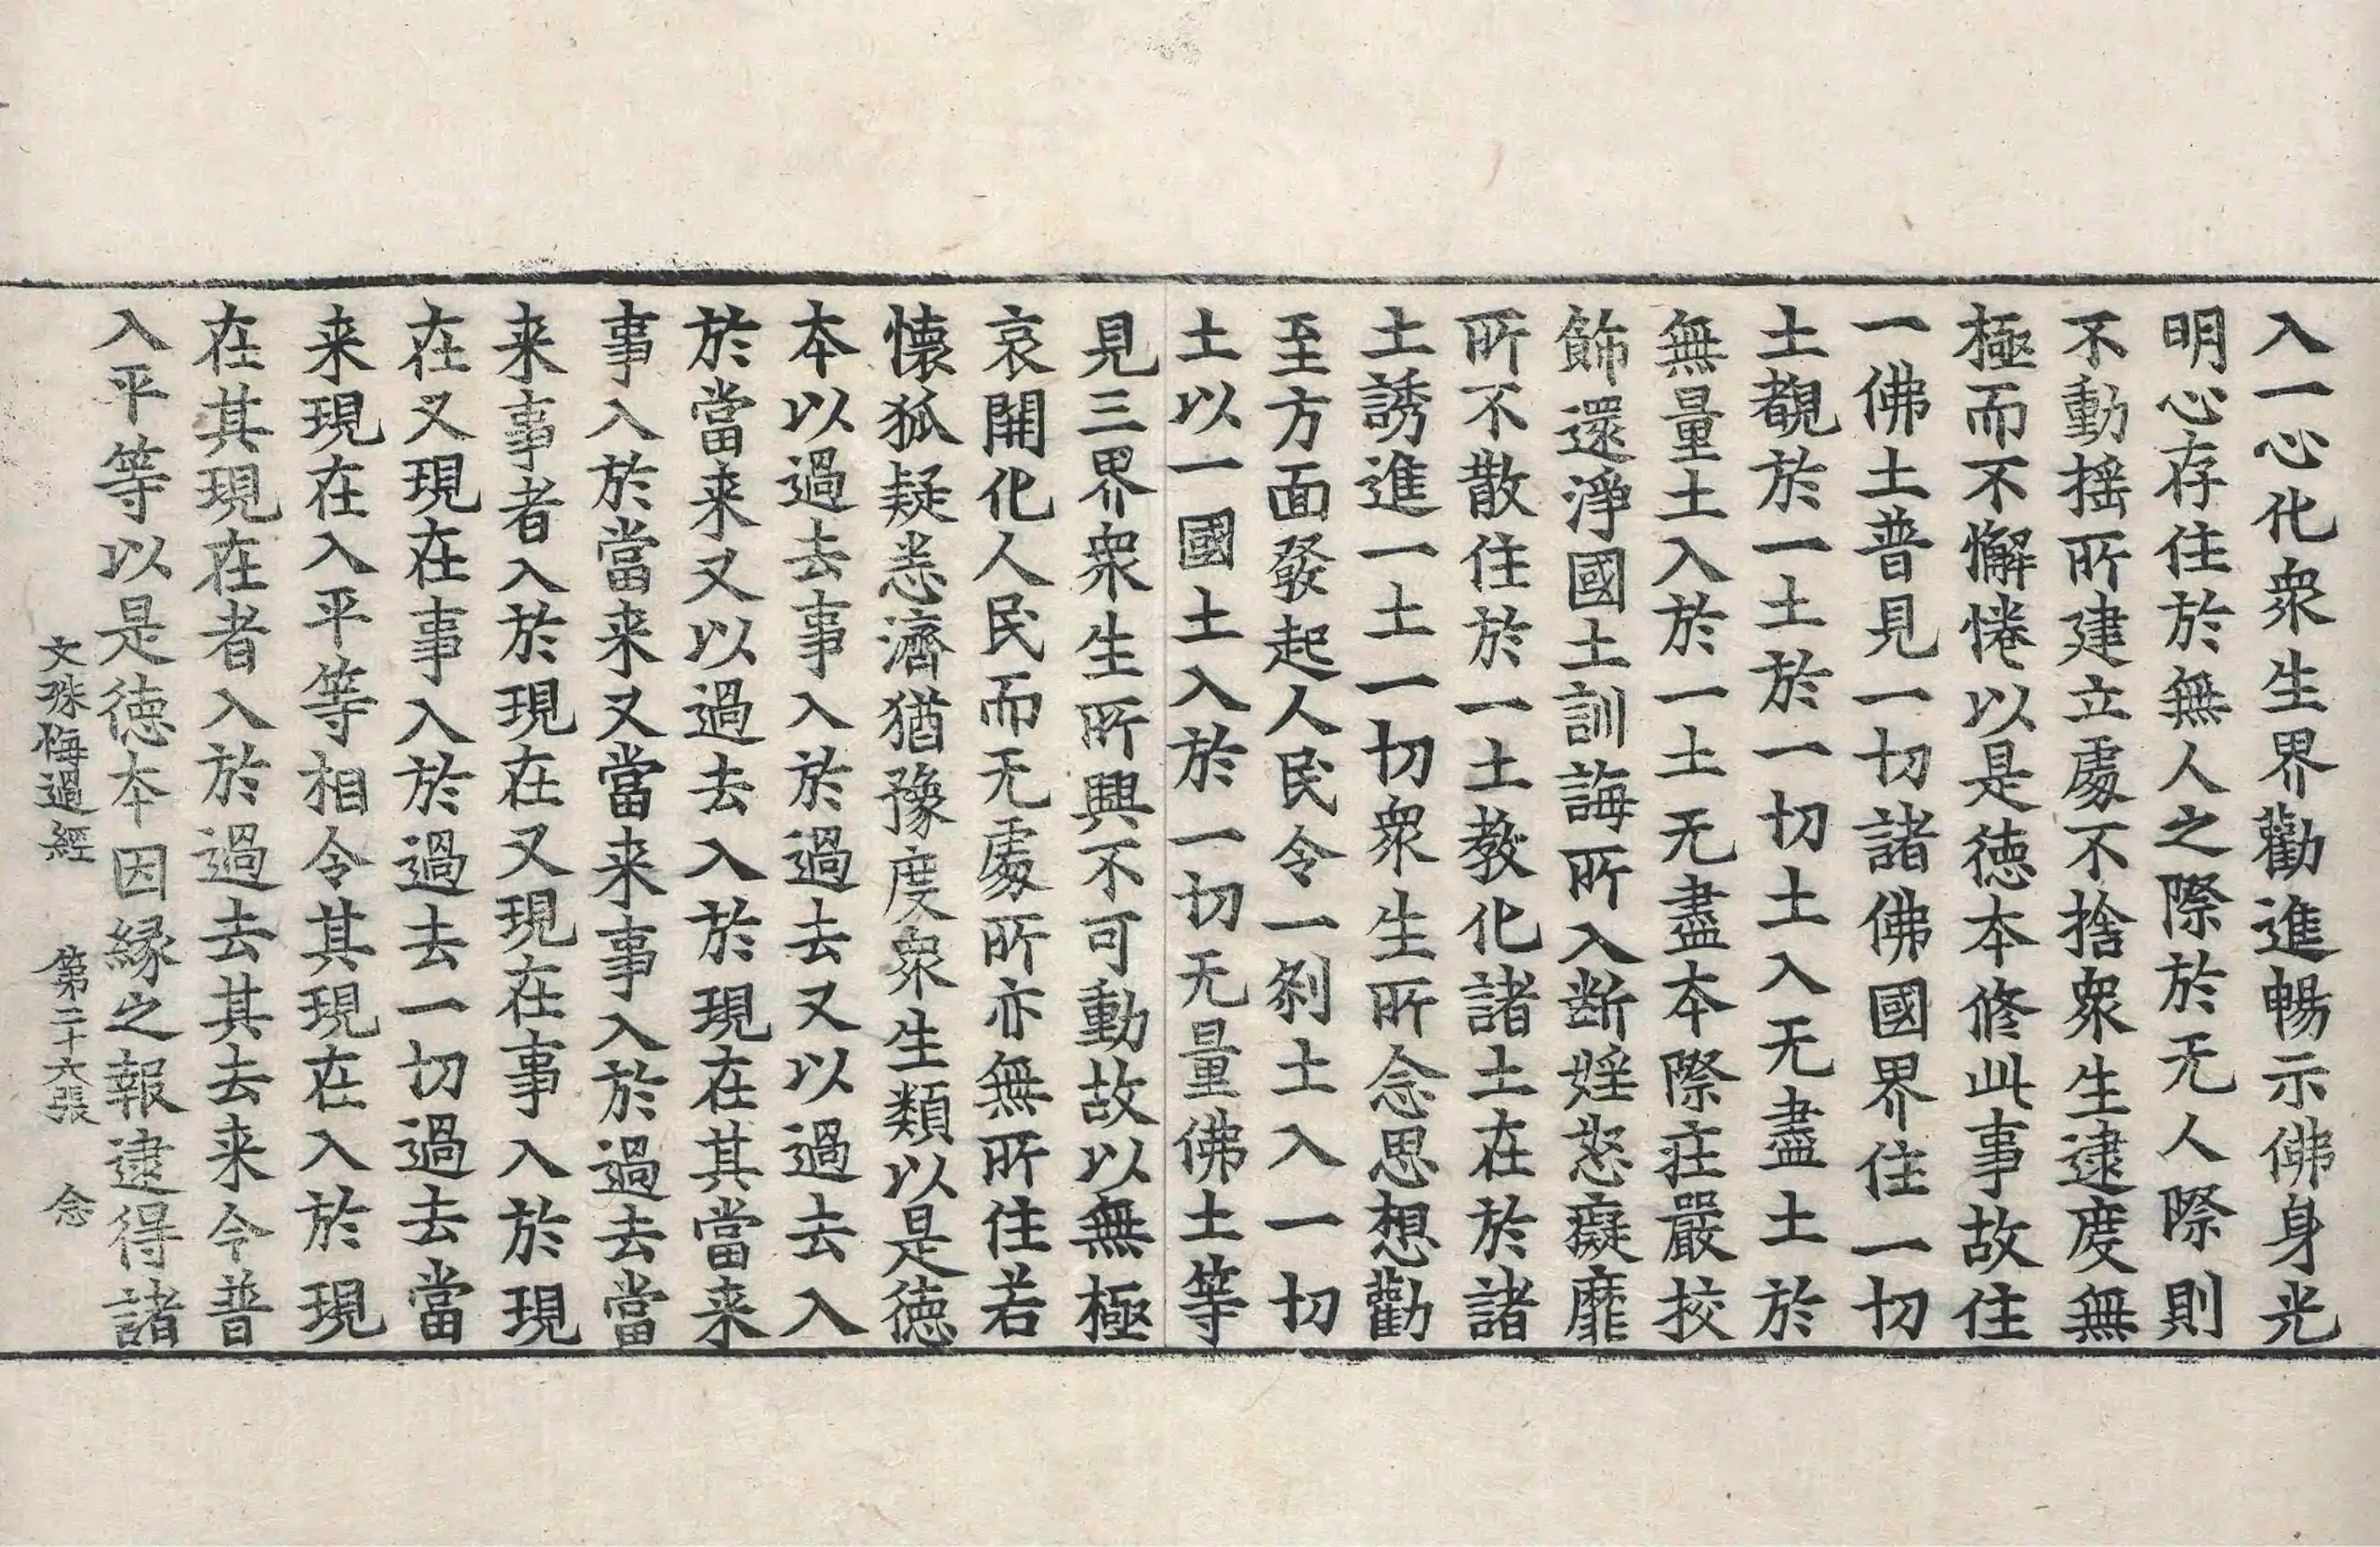 入一心化衆生界勸進暢示佛身光
明心存住於無人之際於无人際則
不動揺所建立處不捨衆生逮度無
極而不懈惓以是徳本修此事故住
一佛土普見一切諸佛國界住一切
土覩於一土於一切土入无盡土於
無量土入於一土无盡本際莊嚴挍
飾還淨國土訓誨所入断婬怒癡靡
所不散住於一土教化諸土在於諸
土誘進一土一切衆生所念思想勸
至方面發起人民令一刹土入一切
土以一國土入於一切无量佛土等
見三界衆生所興不可動故以無極
哀開化人民而无處所亦無所住若
懐狐疑悉濟猶豫度衆生類以是徳
本以過去事入於過去又以過去入
於當来又以過去入於現在其當来
事入於當来又當来事入於過去當
来事者入於現在又現在事入於現
在又現在事入於過去一切過去當
来現在入平等相令其現在入於現
在其現在者入於過去其去来今普
入平等以是徳本因縁之報逮得諸
文殊悔過經 第二十六張 念